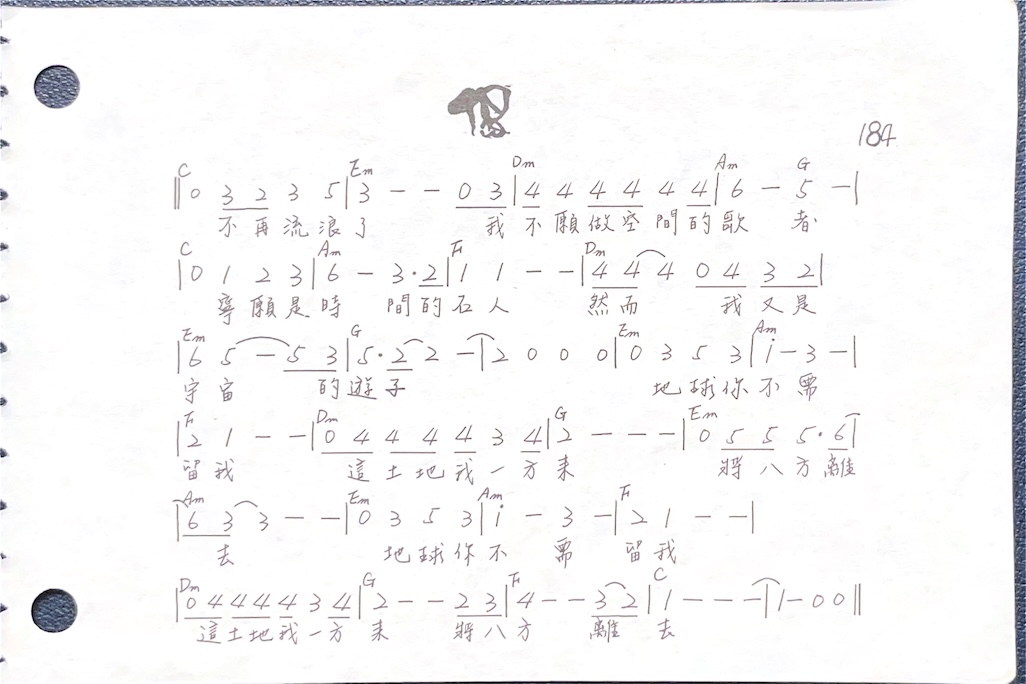 184
C Em Dm Am G
‖0 3 2 3 5|3 - - 0 3|4 4 4 4 4 4|6 - 5 -|
不再流浪了 我不願做空間的歌者
C Am F Dm
|0 1 2 3|6 - 3·2|1 1 - -|4 4 4 0 4 3 2|
寧願是時間的石人 然而 我又是
Em G Em Am
|6 5 - 5 3|5·2 2 -|2 0 0 0|0 3 5 3|i - 3 -|
宇宙 的遊子 地球你不需
F Dm G Em
|2 1 - -|0 4 4 4 4 3 4|2 - - -|0 5 5 5·6|
留我 這土地我一方來 將八方離
Am Em Am F
|6 3 3 - -|0 3 5 3|i - 3 -|2 1 - -|
去 地球你不需 留我
Dm G F C
|0 4 4 4 4 3 4|2 - - 2 3|4 - - 3 2|1 - - -|1 - 0 0‖
這土地我一方來 將八方 離去